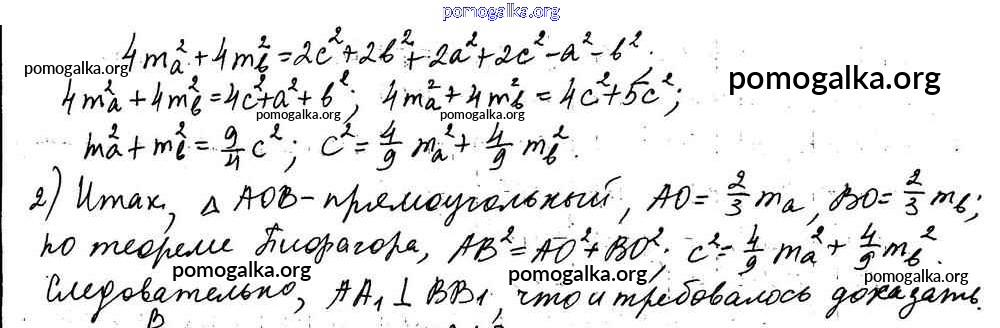 pomogalka.org
4m_a² + 4m_b² = 2c² + 2b² + 2a² + 2c² - a² - b²;
pomogalka.org pomogalka.org
4m_a² + 4m_b² = 4c² + a² + b²; 4m_a² + 4m_b² = 4c² + 5c²;
pomogalka.org pomogalka.org
m_a² + m_b² = 9/4 c²; c² = 4/9 m_a² + 4/9 m_b².
2) Итак, △ AOB - прямоугольный, AO = 2/3 m_a, BO = 2/3 m_b;
по теореме Пифагора, AB² = AO² + BO²; c² = 4/9 m_a² + 4/9 m_b².
pomogalka.org pomogalka.org pomogalka.org
Следовательно, AA₁ ⊥ BB₁, что и требовалось доказать.
B